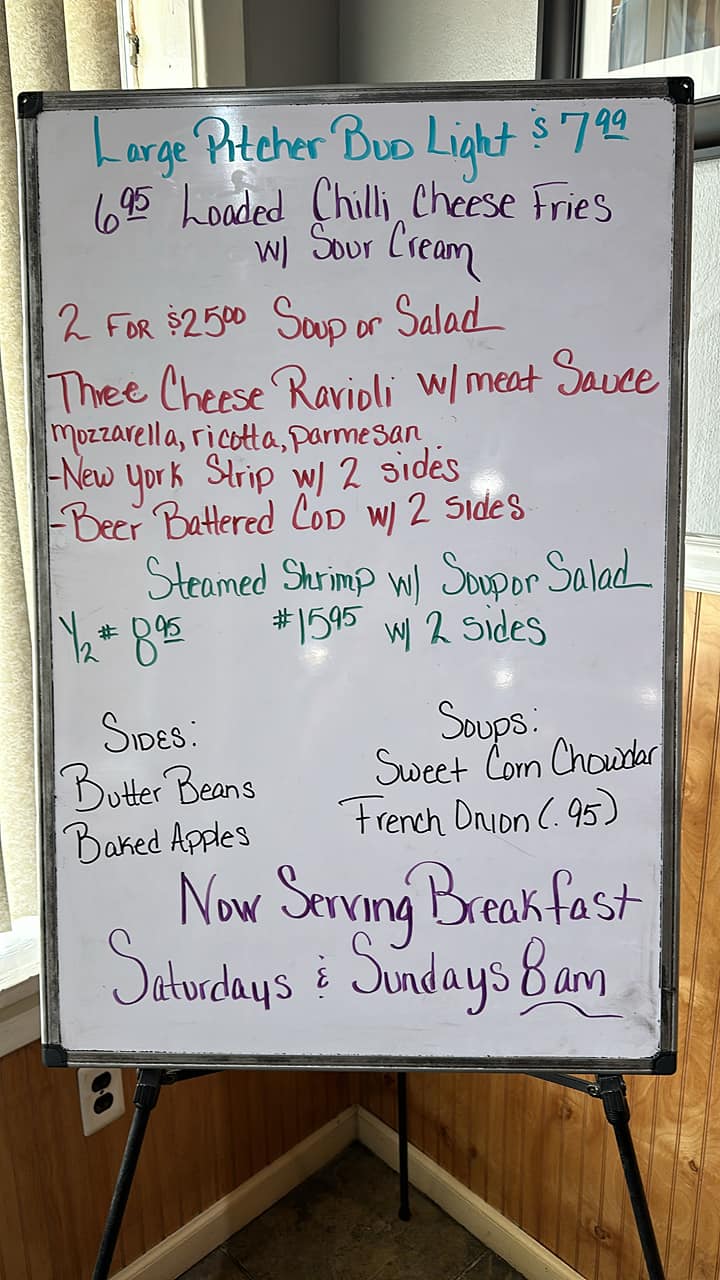 Large Pitcher Bud Light $7.99
6.95 Loaded Chilli Cheese Fries
w/ Sour Cream
2 FOR $25.00 Soup or Salad
Three Cheese Ravioli w/ meat Sauce
Mozzarella, ricotta, parmesan
-New York Strip w/ 2 sides
-Beer Battered Cod w/ 2 sides
Steamed Shrimp w/ Soup or Salad
1/2 # 8.95 #15.95 w/ 2 sides
Sides:
Butter Beans
Baked Apples
Soups:
Sweet Corn Chowdar
French Onion (.95)
Now Serving Breakfast
Saturdays & Sundays 8am